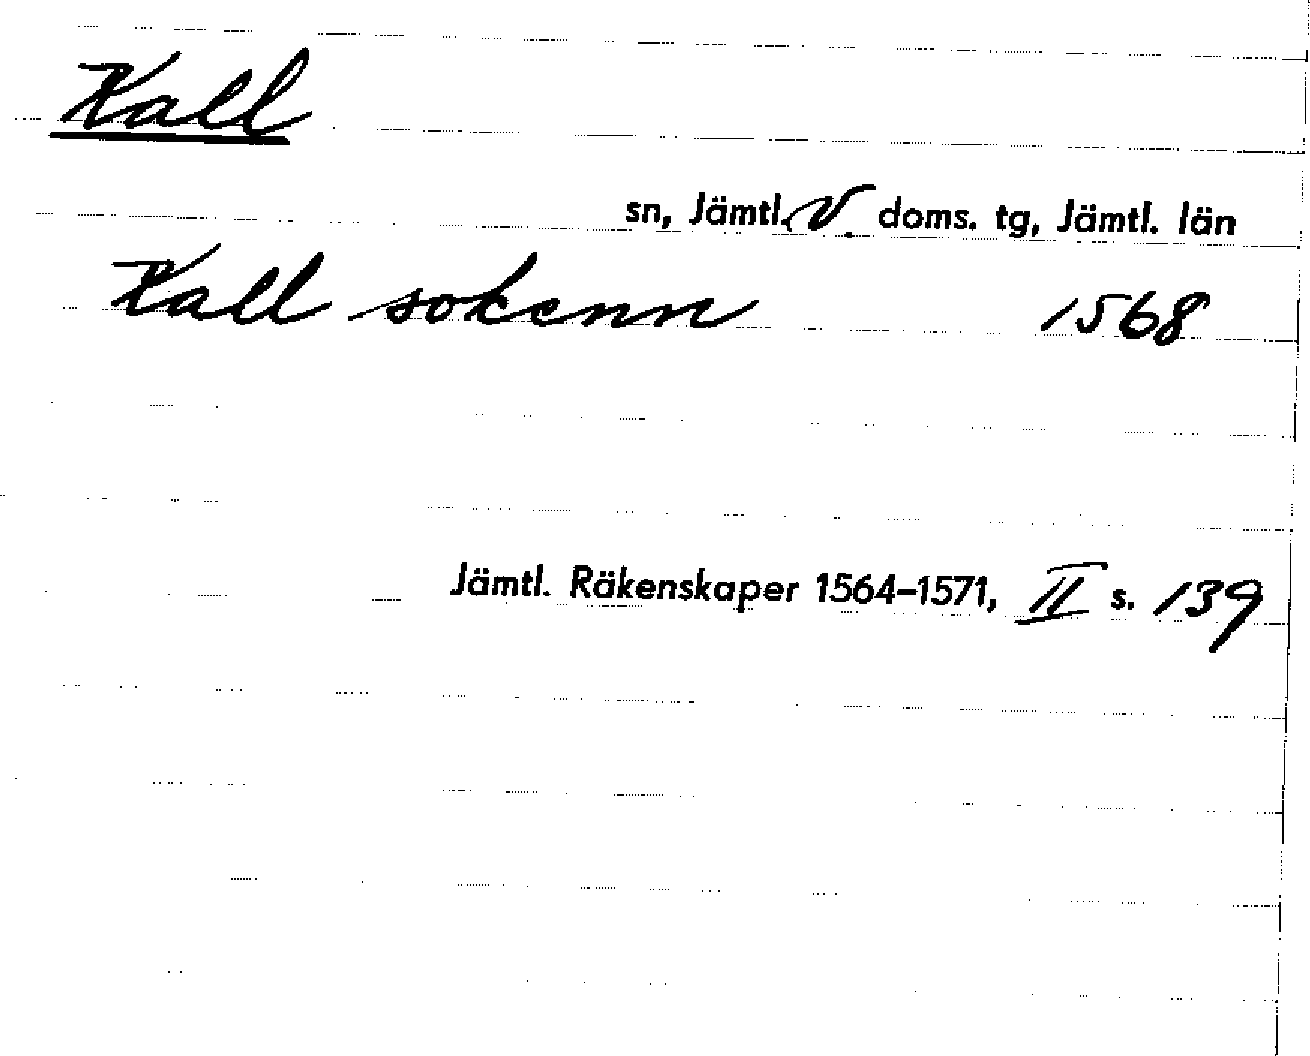 Kall
sn, Jämtl. V. doms. tg, Jämtl. län
Kall sokenn 1568
Jämtl. Räkenskaper 1564–1571, II s. 139